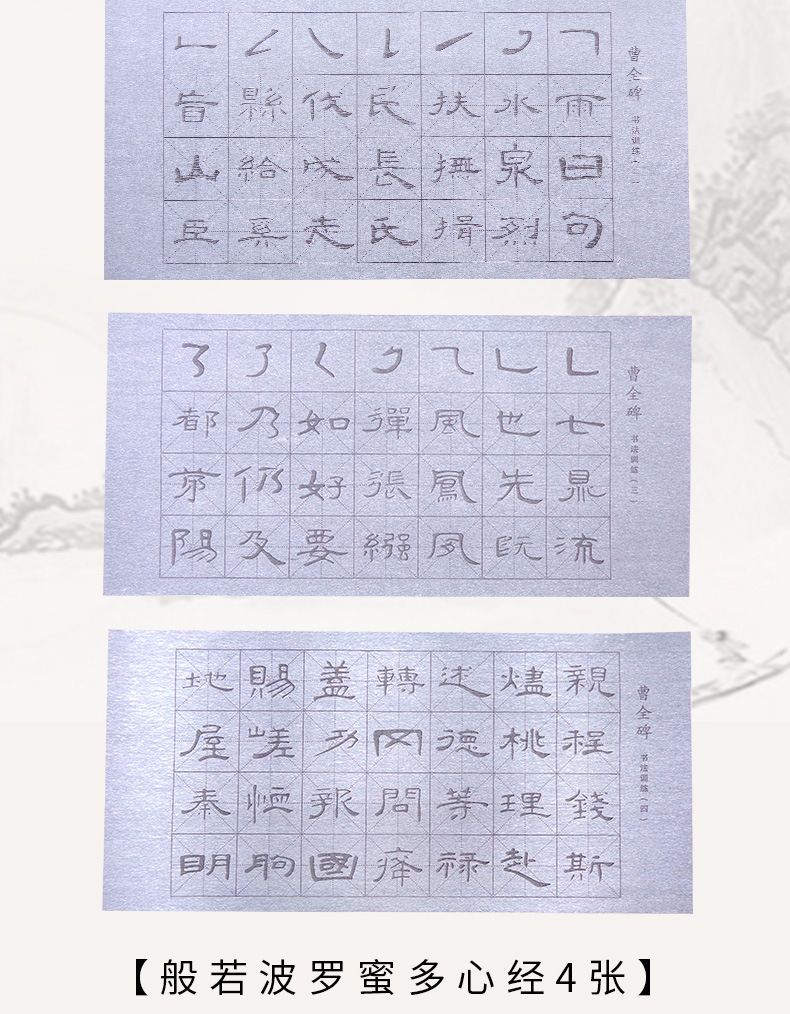 曹全碑 书法训练
雨曰句
水泉烈
扶撫揖
民長氏
伐成走
縣給
山臣
曹全碑 书法训练(三)
七流
也先既
風鳳夙
彈張
如好要
乃仍及
都第陽
曹全碑 书法训练(四)
親程錢斯
燼桃理赴
述德等禄
轉网問
蓋功報國
賜嵯恤朐
地屋秦明
【般若波罗蜜多心经4张】